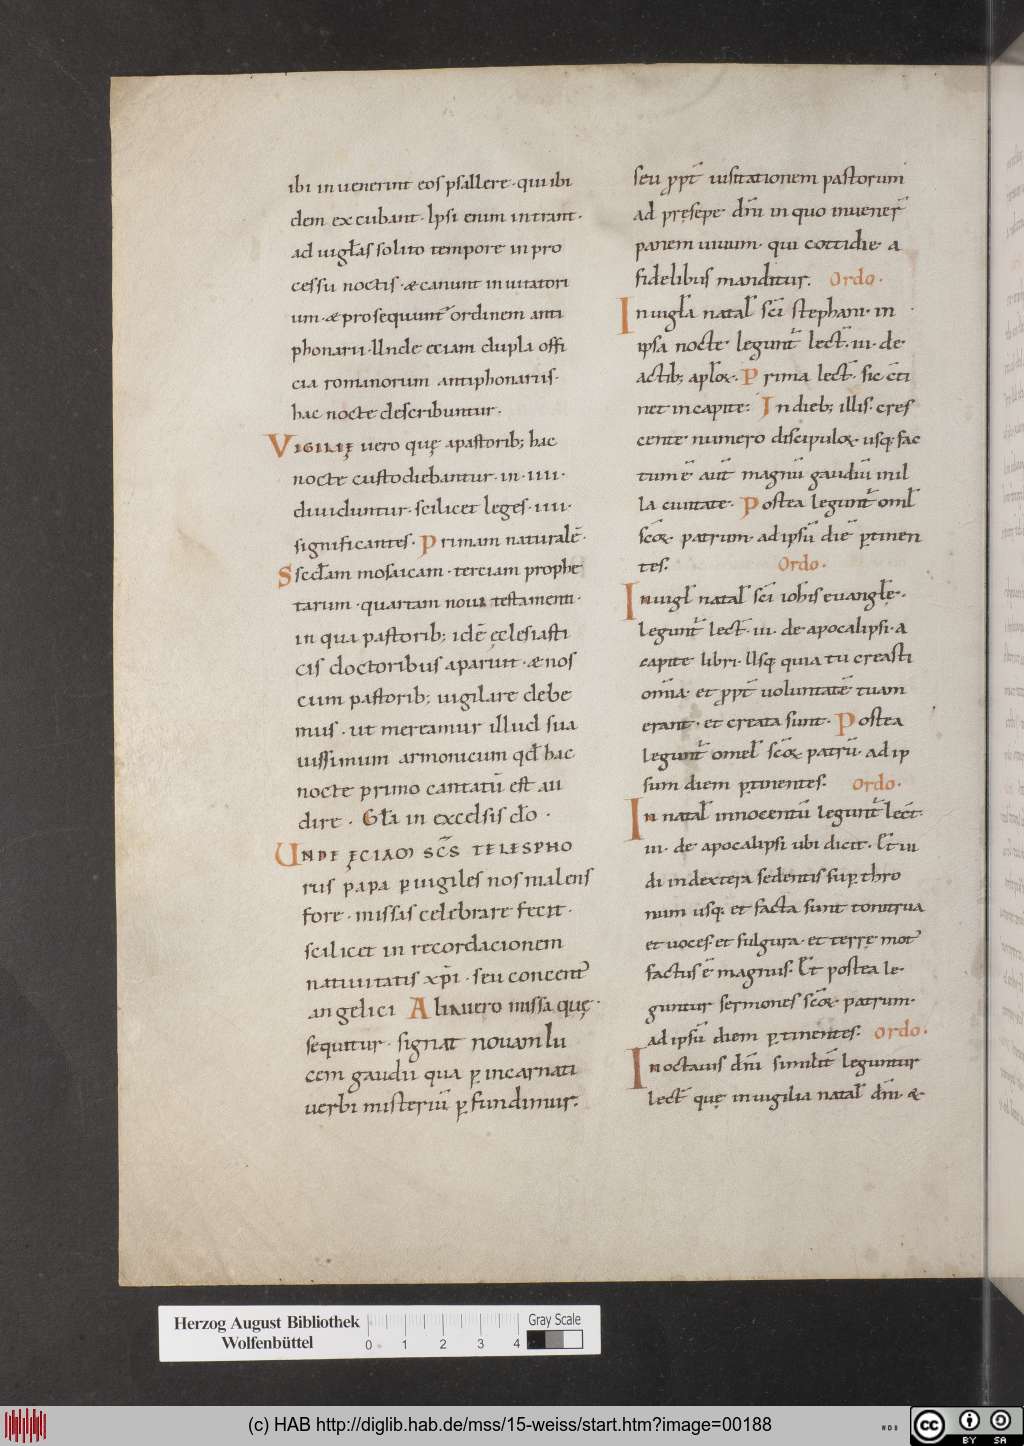 ibi inuenerint eos psallere · qui ibi
dem excubant · Ipsi enim intrant ·
ad uigl̄as solito tempore in pro
cessu noctis · & canunt inuitatori
um · & prosequunt᷑ ordinem anti
phonarii · Unde eciam dupla offi
cia romanorum antiphonariis ·
hac nocte describuntur ·
VIGILIĘ uero quę apastorib; hac
nocte custodiebantur · in · IIII ·
diuiduntur · scilicet leges · IIII ·
significantes · Primam naturalē ·
Sscd̄am mosaicam · terciam prophe
tarum · quartam noui testamenti ·
in qua pastorib; idē ęclesiasti
cis doctoribus apariut · & nos
cum pastorib; uigilare debe
mus · ut mereamur illud sua
uissimum armonicum qd̄ hac
nocte primo cantatū est au
dire · Gl̄a in excelsis do ·
UNDE ĘCIAM SC̄S TELESPHO
rus papa p̱uigiles nos malens
fore · missas celebrare fecit ·
scilicet in recordacionem
natiuitatis xp̄i · seu concent᷑
angelici Alia uero missa quę ·
sequitur · signat nouam lu
cem gaudii qua p̱ incarnati
uerbi misteriū p̱fundimur ·
seu ꝓpt̄ uisitationem pastorum
ad pręsepe dn̄i in quo inuener̄
panem uiuum · qui cottidie a
fidelibus manditur. Ordo ·
In uigl̄a natal̄ sc̄i stephani · in
ipsa nocte legunt᷑ lect̄ · III · de
actib; apl̄oꝝ · Prima lect̄ · sic c̄ti
net in capite : In dieb; illis · cres
cente numero discipuloꝝ · usq; fac
tum ē aut̄ magnū gaudiū in il
la ciuitate · Postea legunt᷑ omil̄
sc̄oꝝ patrum · ad ipsū diē p̱tinen
tes. Ordo ·
In uigl̄ natal̄ sc̄i ioh̄is euangl̄ę ·
legunt᷑ lect̄ · III · de apocalipsi · a
capite libri · Usq; quia tu creasti
om̄ia · et ꝓpt̄ uoluntatē tuam
erant · et creata sunt · Postea
legunt᷑ omel̄ sc̄oꝝ patrū · ad ip
sum diem p̱tinentes · Ordo ·
In natal̄ innocentū legunt᷑ lect̄ ·
III · de apocalipsi ubi dicit · Et ui
di in dextera sedentis sup̱ thro
num usq; et facta sunt tonitrua
et uoces · et fulgura · et terrę mot᷒
factus ē magnus · Et postea le ·
guntur sermones sc̄oꝝ · patrum ·
ad ipsū diem p̱tinentes · Ordo ·
In octauis dn̄i similit̄ leguntur
lect̄ quę in uigilia natal̄ dn̄i · &
Herzog August Bibliothek
Wolfenbüttel
0 1 2 3 4
Gray Scale
(c) HAB http://diglib.hab.de/mss/15-weiss/start.htm?image=00188
WDB
cc BY SA